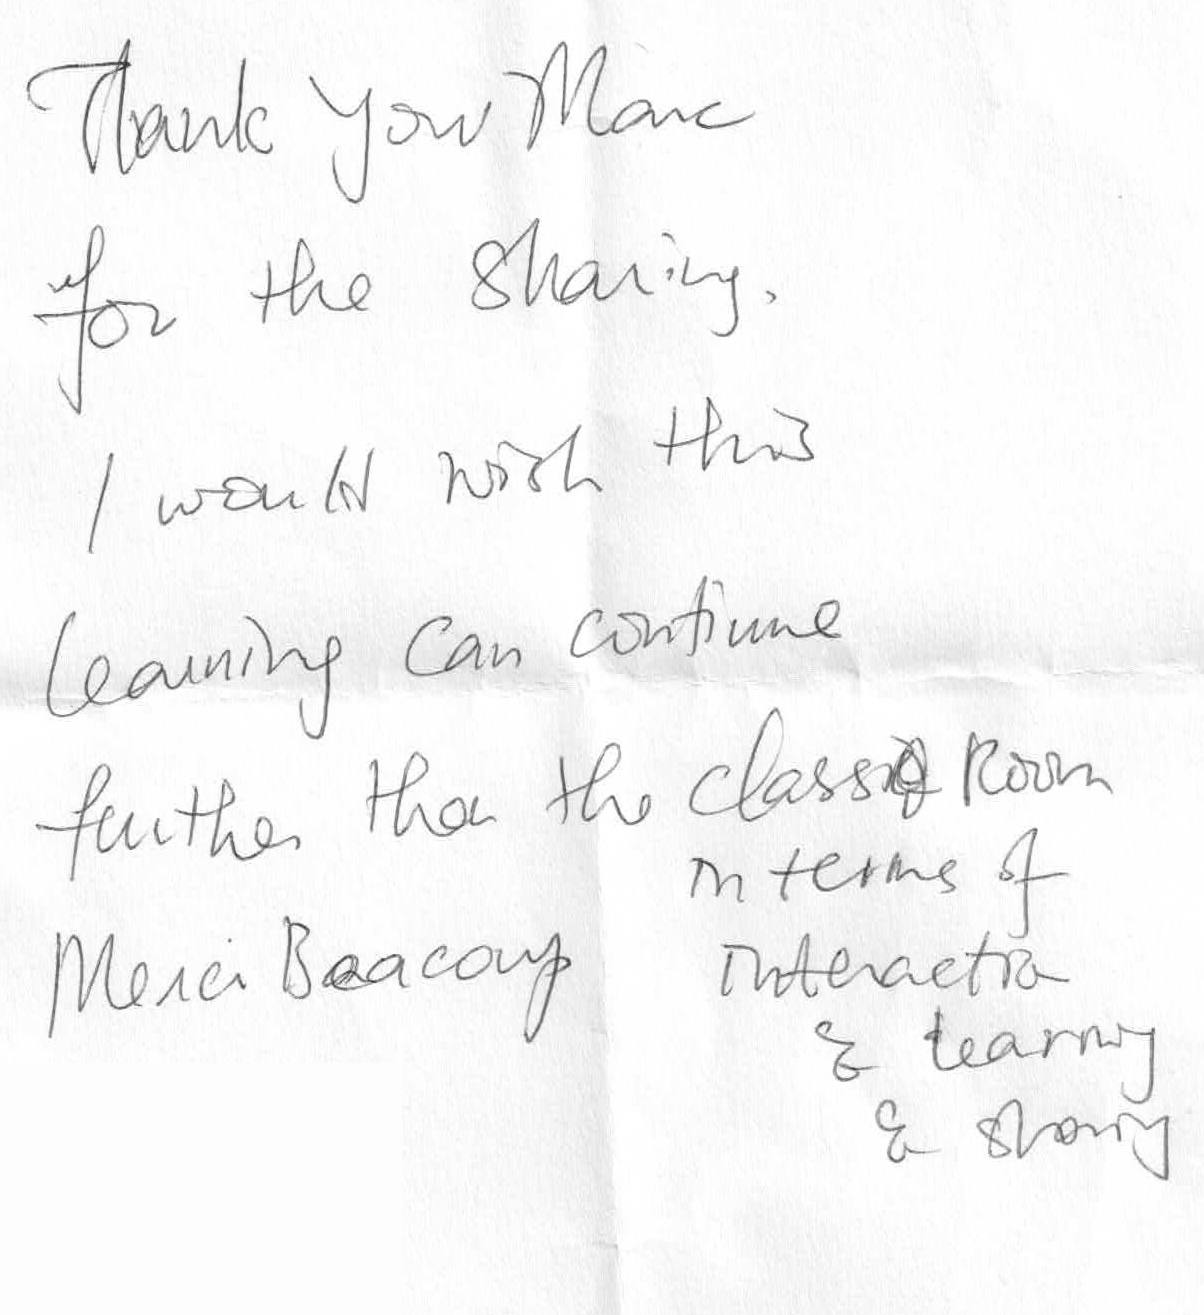 Thank you Marc
for the sharing.
I would wish this
learning can continue
further than the class Room
in terms of
interaction
& learning
& sharing
Merci Beaucoup